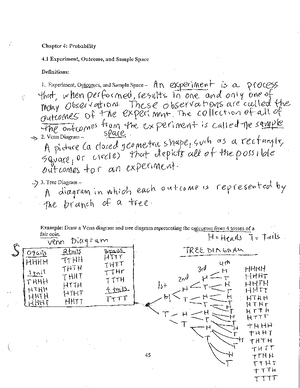 Chapter 4: Probability
4.1 Experiment, Outcome, and Sample Space
Definitions:
1. Experiment, Outcomes, and Sample Space – An experiment is a process
that, when performed, results in one and only one of
many observations. These observations are called the
outcomes of the experiment. The collection of all of
the outcomes from the experiment is called the sample
space.
2. Venn Diagram –
A picture (a closed geometric shape, such as a rectangle,
square, or circle) that depicts all of the possible
outcomes for an experiment.
3. Tree Diagram –
A diagram in which each outcome is represented by
the branch of a tree.
Example: Draw a Venn diagram and tree diagram representing the outcomes from 4 tosses of a
fair coin.
H=Heads T=Tails
Venn Diagram
TREE DIAGRAM
S
1st 2nd 3rd 4th
HHHH
HHHT
HHTH
HHTT
HTHH
HTHT
HTTH
HTTT
THHH
THHT
THTH
THTT
TTHH
TTHT
TTTH
TTTT
45